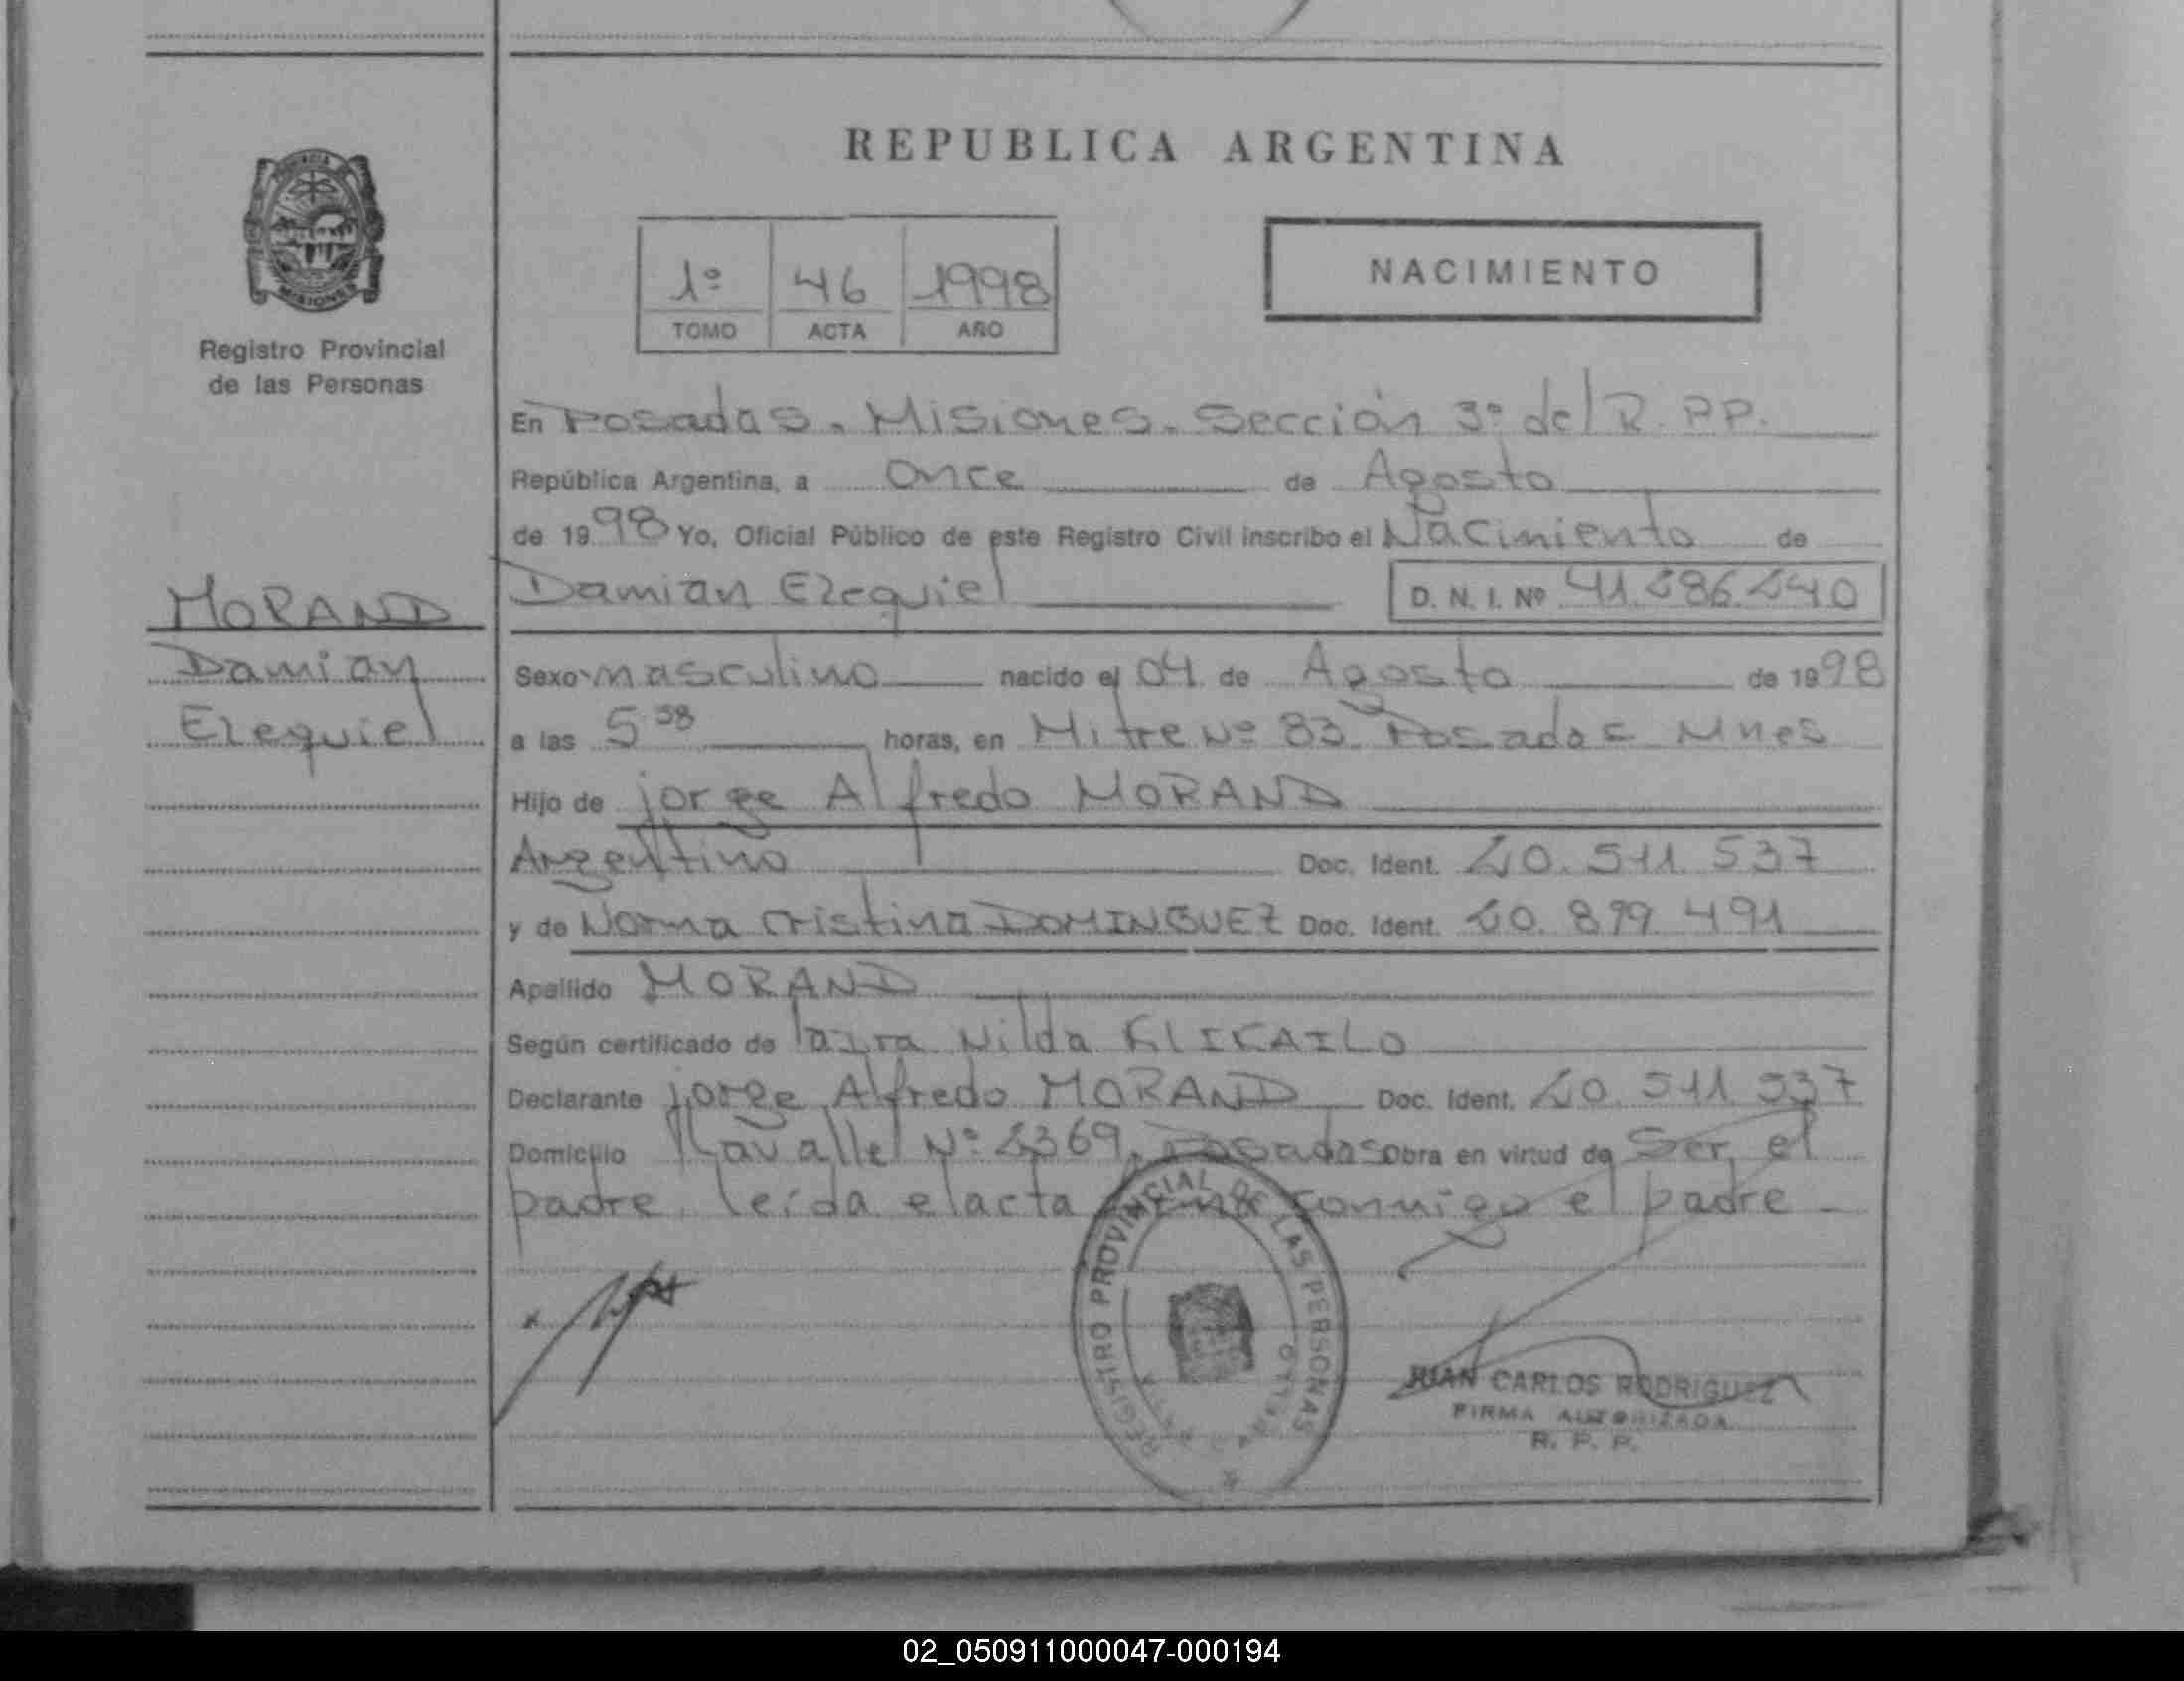 REPUBLICA ARGENTINA
1º 46 1998
TOMO ACTA AÑO
NACIMIENTO
MISIONES
Registro Provincial
de las Personas
En Posadas. Misiones. Sección 3º del R. P.P.
República Argentina, a Once de Agosto
de 1998 Yo, Oficial Público de este Registro Civil inscribo el Nacimiento de
Damian Ezequiel D. N. I. Nº 41.286.240
MORAND
Damian
Ezequiel
Sexo masculino nacido el 04 de Agosto de 1998
a las 5 38 horas, en Mitre Nº 83. Posadas Mnes
Hijo de jorge Alfredo MORAND
Argentino Doc. Ident. 20.511.537
y de Norma Cristina DOMINGUEZ Doc. Ident. 20.899.491
Apellido MORAND
Según certificado de Nilda
Declarante jorge Alfredo MORAND Doc. Ident. 20.511.537
Domicilio Lavalle Nº 2369. Posadas Obra en virtud de Ser el
padre. leida el acta firma conmigo el padre
REGISTRO PROVINCIAL DE LAS PERSONAS
JUAN CARLOS RODRIGUEZ
FIRMA AUTORIZADA
R. P. P.
02_050911000047-000194